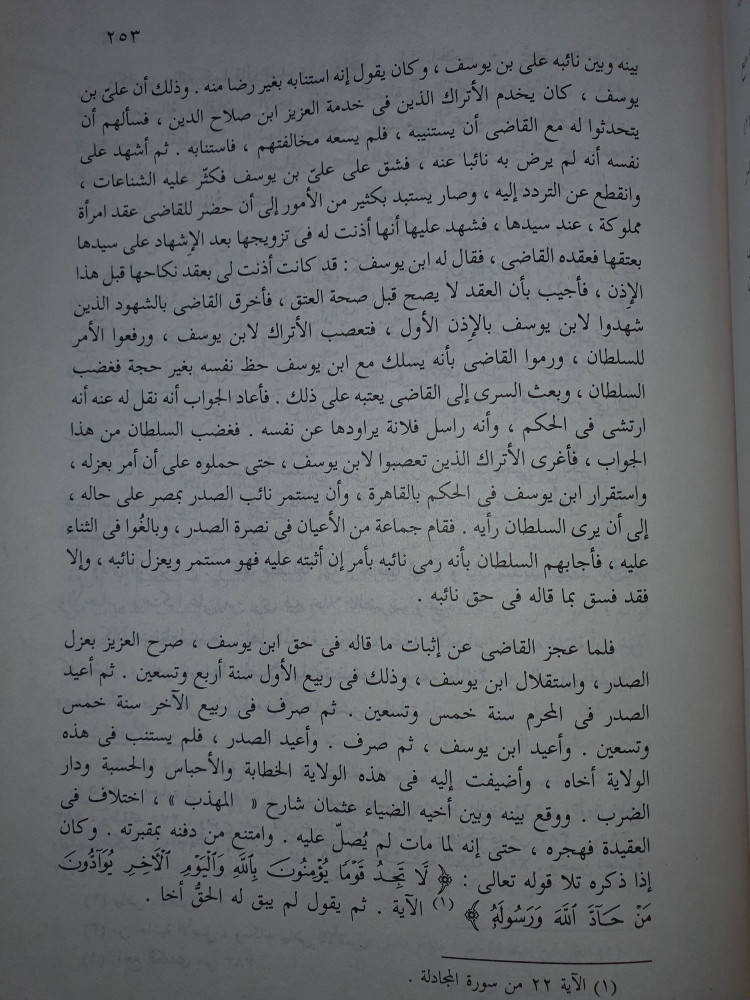 ٢٥٣
بينه وبين نائبه على بن يوسف ، وكان يقول إنه استنابه بغير رضا منه . وذلك أن علىّ بن
يوسف ، كان يخدم الأتراك الذين فى خدمة العزيز ابن صلاح الدين ، فسألهم أن
يتحدثوا له مع القاضى أن يستنيبه ، فلم يسعه مخالفتهم ، فاستنابه . ثم أشهد على
نفسه أنه لم يرض به نائبا عنه ، فشق على علىّ بن يوسف فكثّر عليه الشناعات ،
وانقطع عن التردد إليه ، وصار يستبد بكثير من الأمور إلى أن حضر للقاضى عقد امرأة
مملوكة ، عند سيدها ، فشهد عليها أنها أذنت له فى تزويجها بعد الإشهاد على سيدها
بعتقها فعقده القاضى ، فقال له ابن يوسف : قد كانت أذنت لى بعقد نكاحها قبل هذا
الإذن ، فأجيب بأن العقد لا يصح قبل صحة العتق ، فأخرق القاضى بالشهود الذين
شهدوا لابن يوسف بالإذن الأول ، فتعصب الأتراك لابن يوسف ، ورفعوا الأمر
للسلطان ، ورموا القاضى بأنه يسلك مع ابن يوسف حظ نفسه بغير حجة فغضب
السلطان ، وبعث السرى إلى القاضى يعتبه على ذلك . فأعاد الجواب أنه نقل له عنه أنه
ارتشى فى الحكم ، وأنه راسل فلانة يراودها عن نفسه . فغضب السلطان من هذا
الجواب ، فأغرى الأتراك الذين تعصبوا لابن يوسف ، حتى حملوه على أن أمر بعزله ،
واستقرار ابن يوسف فى الحكم بالقاهرة ، وأن يستمر نائب الصدر بمصر على حاله ،
إلى أن يرى السلطان رأيه . فقام جماعة من الأعيان فى نصرة الصدر ، وبالغُوا فى الثناء
عليه ، فأجابهم السلطان بأنه رمى نائبه بأمر إن أثبته عليه فهو مستمر ويعزل نائبه ، وإلا
فقد فسق بما قاله فى حق نائبه .
فلما عجز القاضى عن إثبات ما قاله فى حق ابن يوسف ، صرح العزيز بعزل
الصدر ، واستقلال ابن يوسف ، وذلك فى ربيع الأول سنة أربع وتسعين . ثم أعيد
الصدر فى المحرم سنة خمس وتسعين . ثم صرف فى ربيع الآخر سنة خمس
وتسعين . وأعيد ابن يوسف ، ثم صرف . وأعيد الصدر ، فلم يستنب فى هذه
الولاية أخاه ، وأضيفت إليه فى هذه الولاية الخطابة والأحباس والحسبة ودار
الضرب . ووقع بينه وبين أخيه الضياء عثمان شارح « المهذب » ، اختلاف فى
العقيدة فهجره ، حتى إنه لما مات لم يُصلّ عليه . وامتنع من دفنه بمقبرته . وكان
إذا ذكره تلا قوله تعالى : ﴿ لَّا تَجِدُ قَوْمًا يُؤْمِنُونَ بِاللَّهِ وَالْيَوْمِ الْآخِرِ يُوَآدُّونَ
مَنْ حَآدَّ اللَّهَ وَرَسُولَهُ ﴾ (١) الآية . ثم يقول لم يبق له الحقُّ أخا .
(١) الآية ٢٢ من سورة المجادلة .